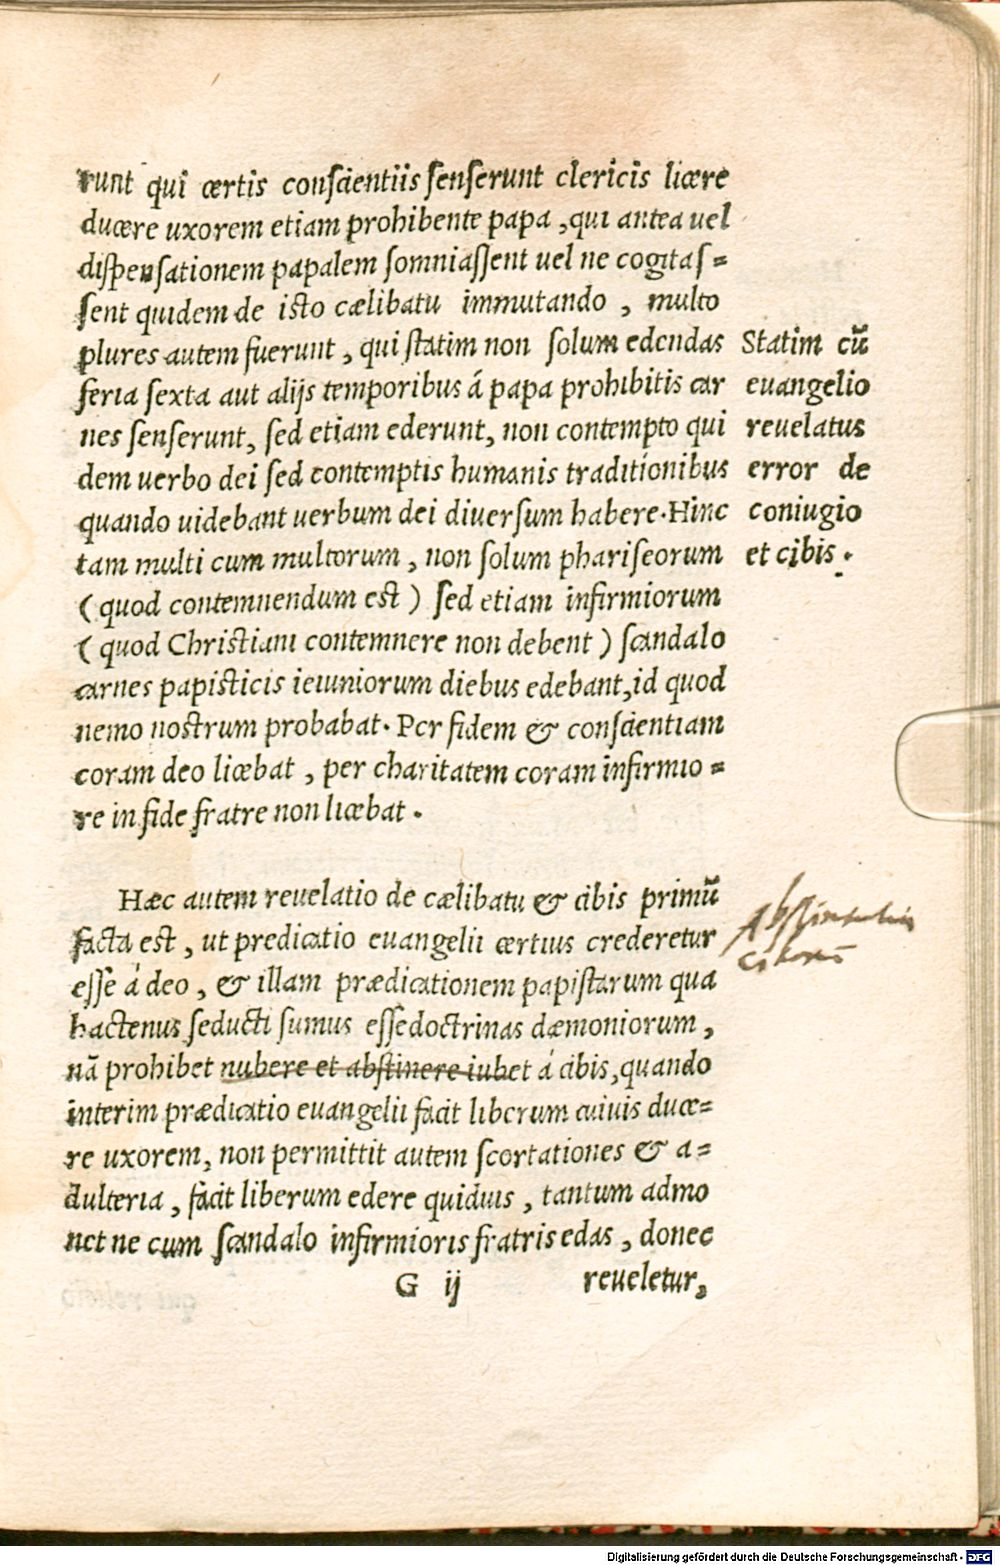 runt qui certis conscientiis senserunt clericis licere
ducere uxorem etiam prohibente papa, qui antea uel
dispensationem papalem somniassent uel ne cogitas=
sent quidem de isto cælibatu immutando, multo
plures autem fuerunt, qui statim non solum edendas
feria sexta aut alijs temporibus á papa prohibitis car
nes senserunt, sed etiam ederunt, non contempto qui
dem uerbo dei sed contemptis humanis traditionibus
quando uidebant uerbum dei diuersum habere. Hinc
tam multi cum multorum, non solum phariseorum
(quod contemnendum est) sed etiam infirmiorum
(quod Christiani contemnere non debent) scandalo
carnes papisticis ieiuniorum diebus edebant, id quod
nemo nostrum probabat. Per fidem & conscientiam
coram deo licebat, per charitatem coram infirmio=
re in fide fratre non licebat.
Statim cũ
euangelio
reuelatus
error de
coniugio
et cibis.
Hæc autem reuelatio de cælibatu & cibis primũ
facta est, ut predicatio euangelii certius crederetur
esse á deo, & illam prædicationem papistarum qua
hactenus seducti sumus esse doctrinas dæmoniorum,
nã prohibet nubere et abstinere iubet á cibis, quando
interim prædicatio euangelii facit liberum cuiuis duce=
re uxorem, non permittit autem scortationes & a=
dulteria, facit liberum edere quiduis, tantum admo
net ne cum scandalo infirmioris fratris edas, donec
Abstinentia
ciborũ
G ij reueletur,
Digitalisierung gefördert durch die Deutsche Forschungsgemeinschaft - DFG